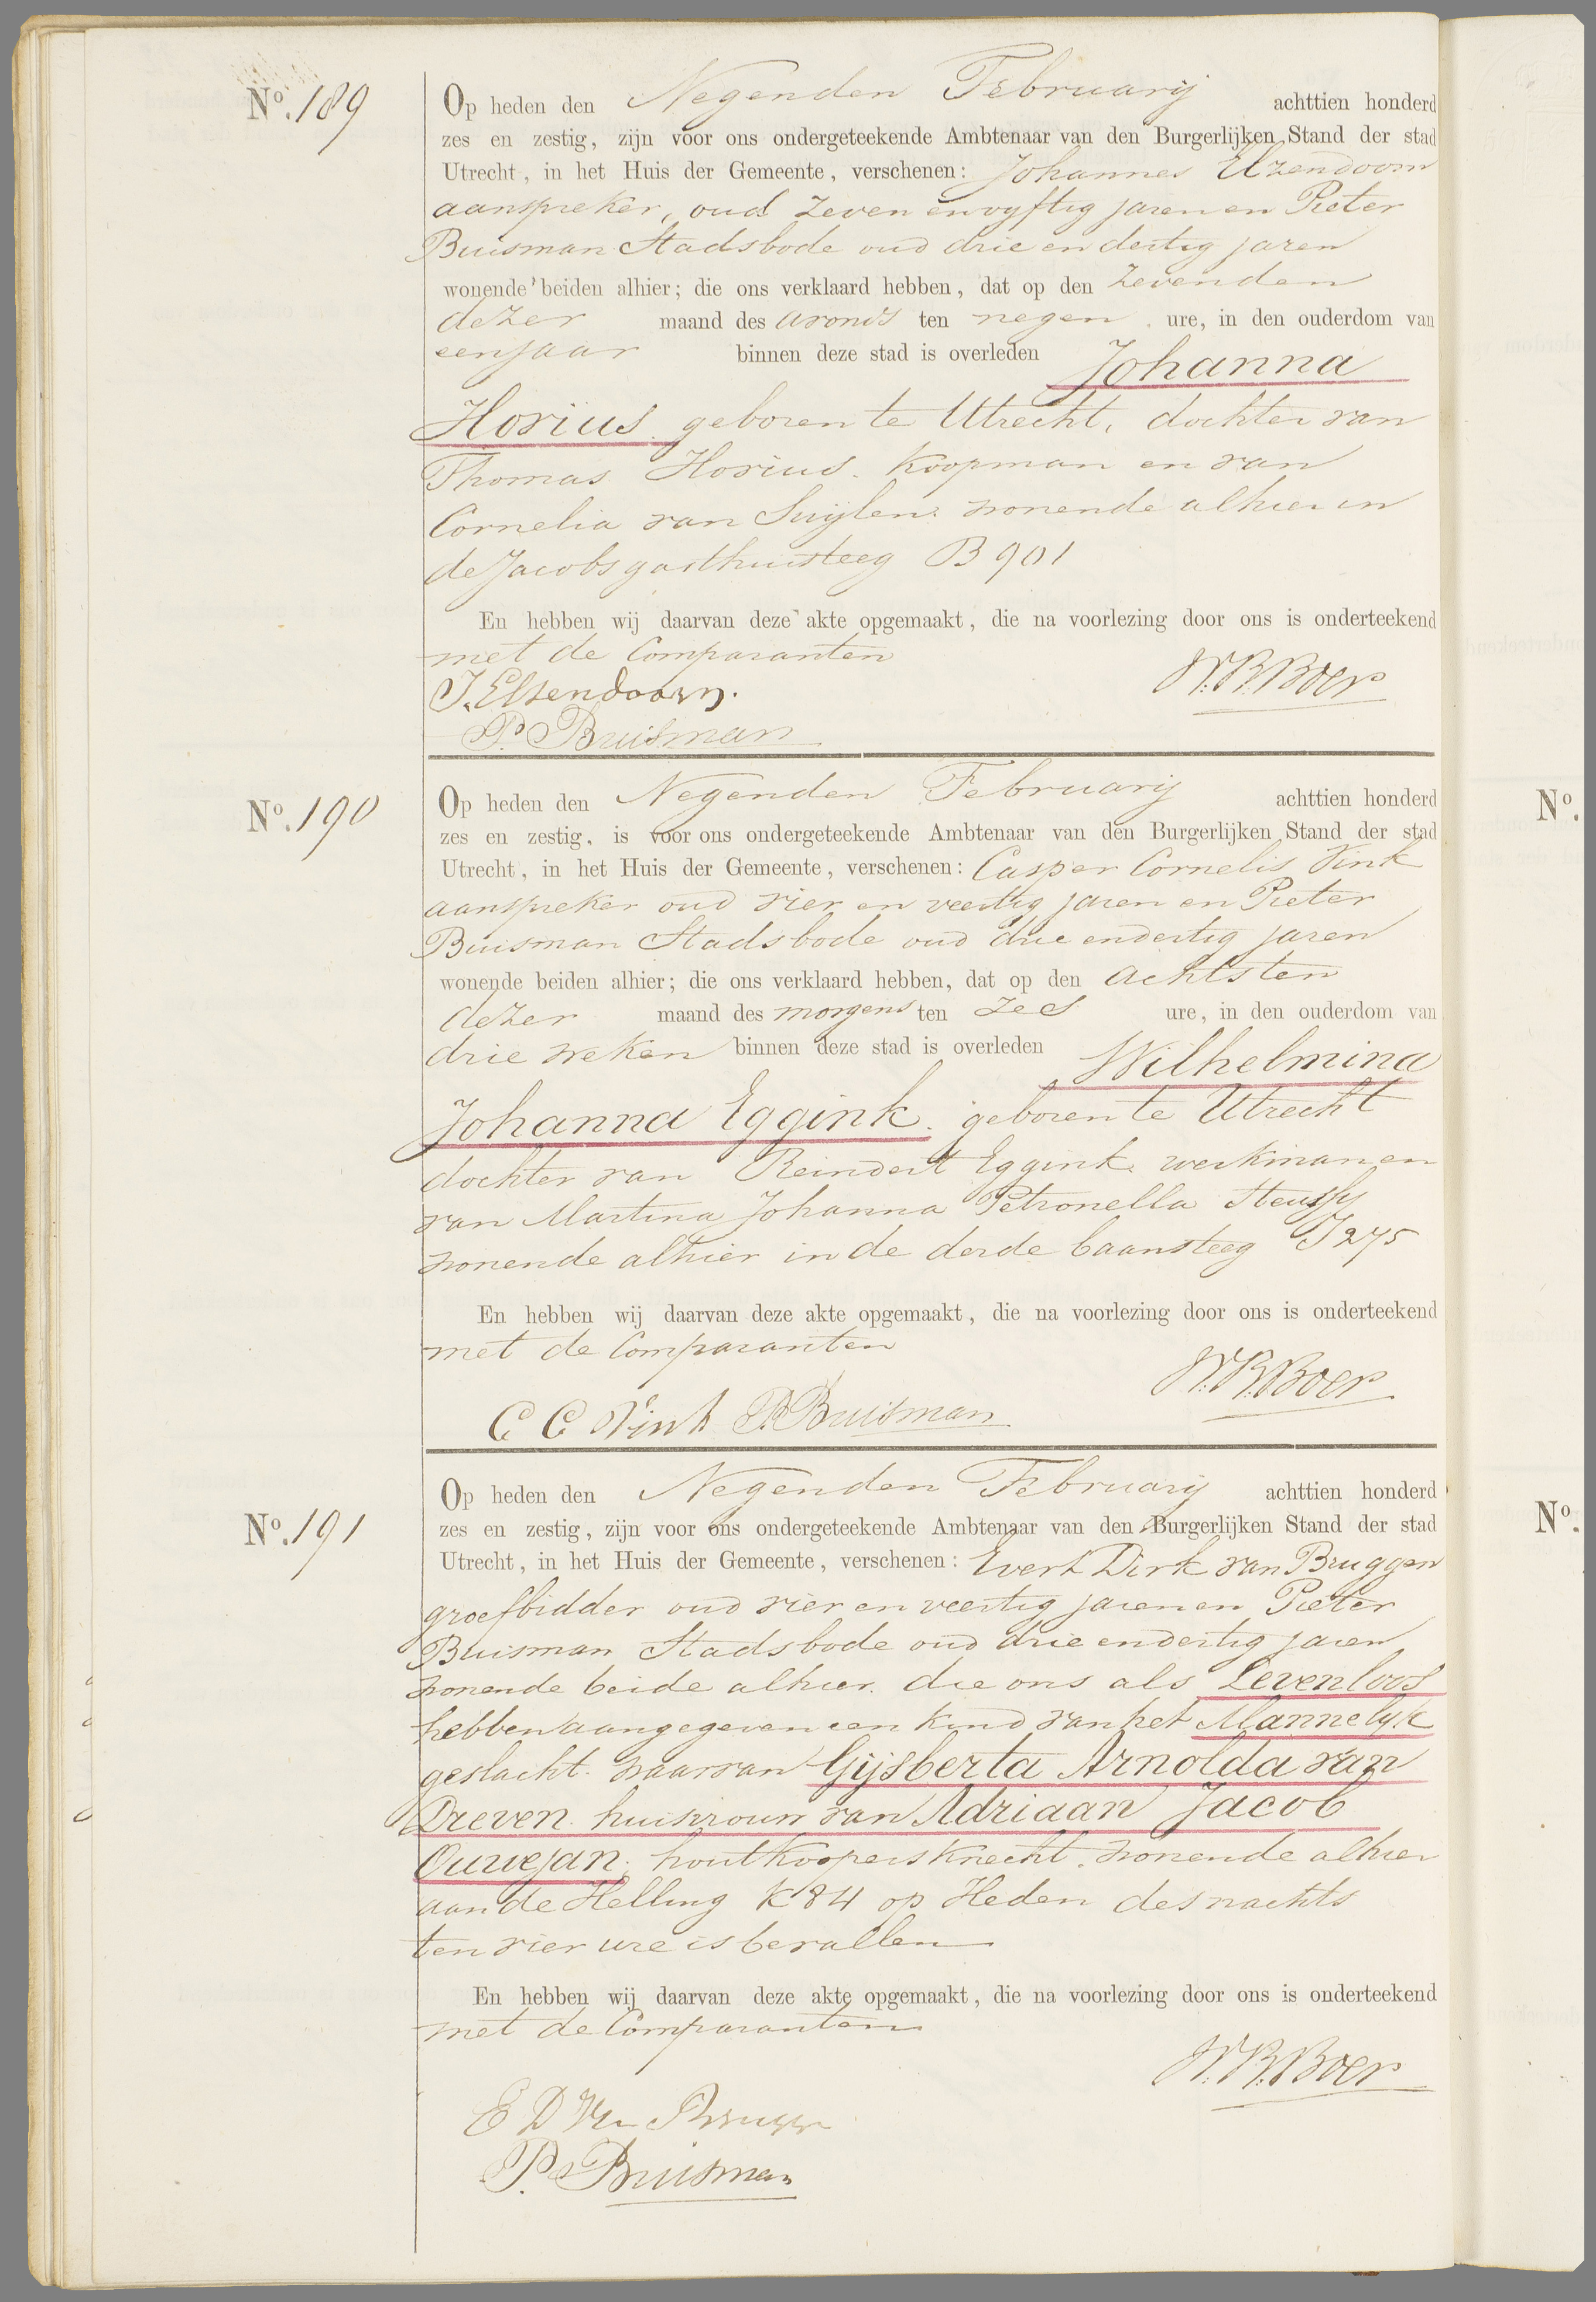 No. 189
Op heden den Negenden Februarij achttien honderd
zes en zestig, zijn voor ons ondergeteekende Ambtenaar van den Burgerlijken Stand der stad
Utrecht, in het Huis der Gemeente, verschenen: Johannes Elzendoorn
aanspreker, oud zeven en vyftig jaren en Pieter
Buisman Stadsbode oud drie en dertig jaren
wonende beiden alhier; die ons verklaard hebben, dat op den zevenden
dezer maand des avonds ten negen ure, in den ouderdom van
een jaar binnen deze stad is overleden Johanna
Horius geboren te Utrecht, dochter van
Thomas Horius. Koopman en van
Cornelia van Suijlen. wonende alhier in
de Jacobs gasthuissteeg B 901
En hebben wij daarvan deze akte opgemaakt, die na voorlezing door ons is onderteekend
met de Comparanten
J. Elsendoorn. W.B.Boer
P. Buisman
No. 190
Op heden den Negenden Februarij achttien honderd
zes en zestig, is voor ons ondergeteekende Ambtenaar van den Burgerlijken Stand der stad
Utrecht, in het Huis der Gemeente, verschenen: Casper Cornelis Vink
aanspreker oud vier en veertig jaren en Pieter
Buisman Stadsbode oud drie en dertig jaren
wonende beiden alhier; die ons verklaard hebben, dat op den achtsten
dezer maand des morgens ten zes ure, in den ouderdom van
drie weken binnen deze stad is overleden Wilhelmina
Johanna Eggink. geboren te Utrecht
dochter van Reindert Eggink werkman en
van Martina Johanna Petronella
wonende alhier in de derde baansteeg J 275
En hebben wij daarvan deze akte opgemaakt, die na voorlezing door ons is onderteekend
met de Comparanten
W.B.Boer
C C Vink P. Buisman
No. 191
Op heden den Negenden Februarij achttien honderd
zes en zestig, zijn voor ons ondergeteekende Ambtenaar van den Burgerlijken Stand der stad
Utrecht, in het Huis der Gemeente, verschenen: Evert Dirk van Bruggen
groefbidder oud vier en veertig jaren en Pieter
Buisman Stadsbode oud drie en dertig jaren
wonende beide alhier. die ons als Levenloos
hebben aangegeven een kind van het Mannelyk
geslacht. waarvan Gijsberta Arnolda van
Dreven huisvrouw van Adriaan Jacob
Ouwejan, houtkoopersknecht. wonende alhier
aan de Helling K 84 op Heden des nachts
ten vier ure is bevallen
En hebben wij daarvan deze akte opgemaakt, die na voorlezing door ons is onderteekend
met de Comparanten
W.B.Boer
E D Vn Brugge
P. Buisman
No.
No.